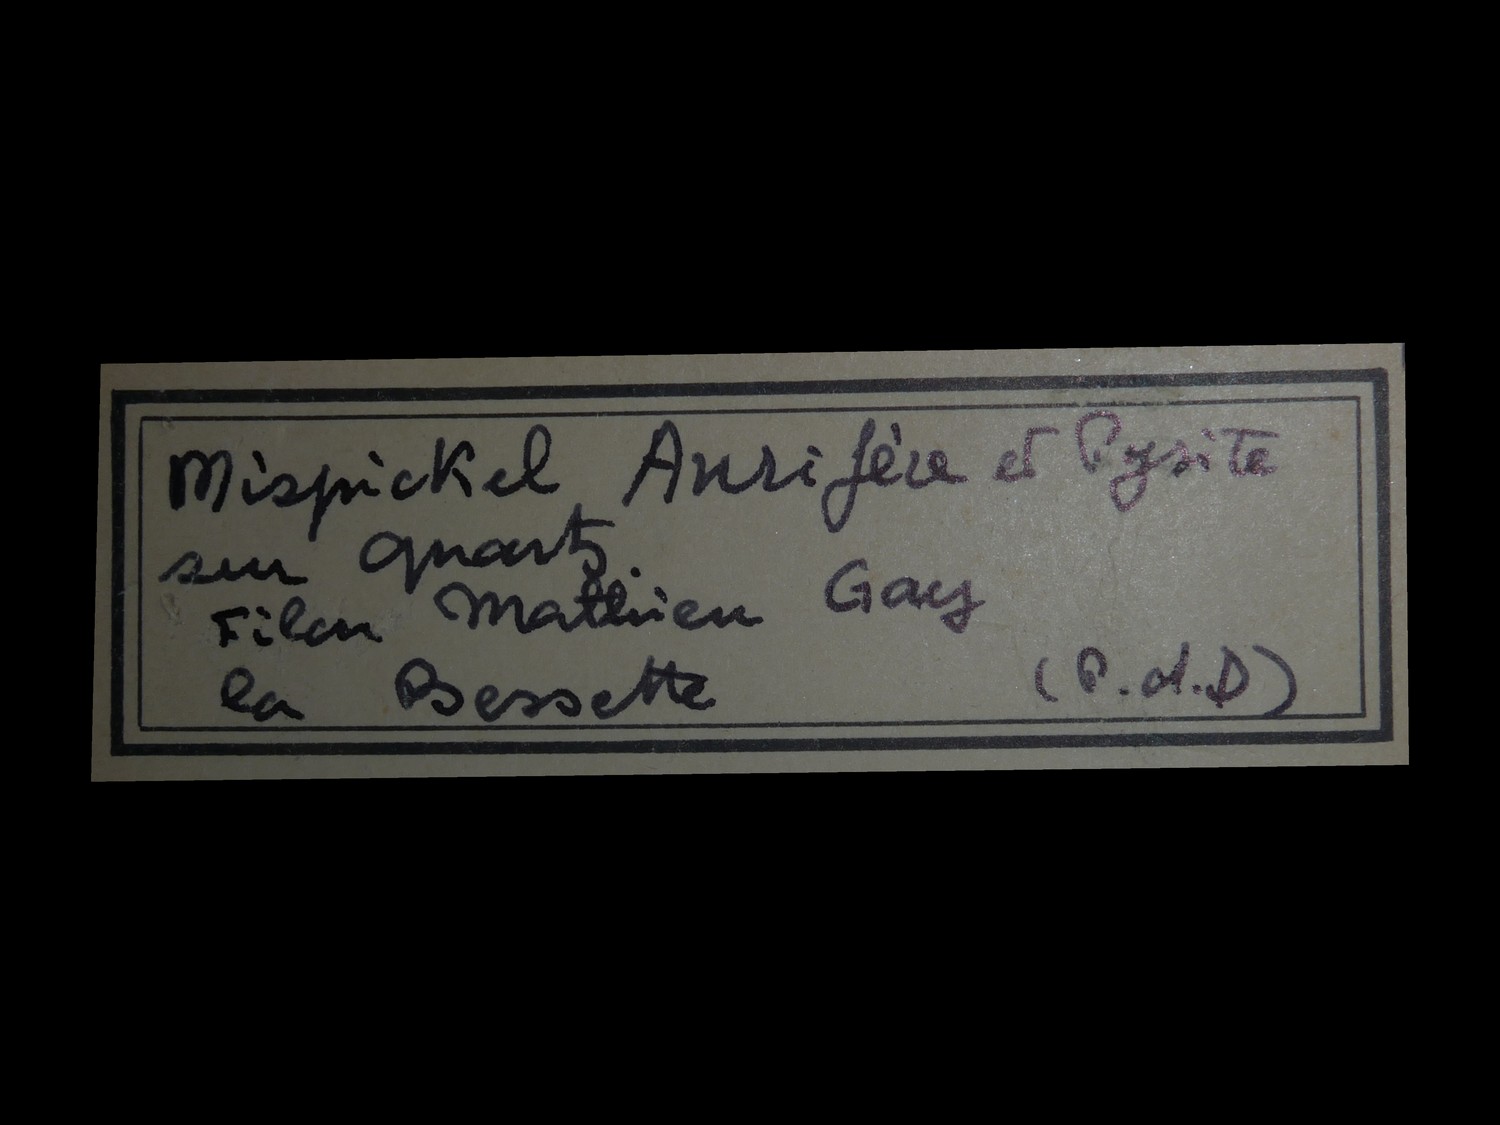 Mispickel Aurifère et Pyrite
sur quartz.
Filon Mathieu Gay
la Bessette (P.d.D)